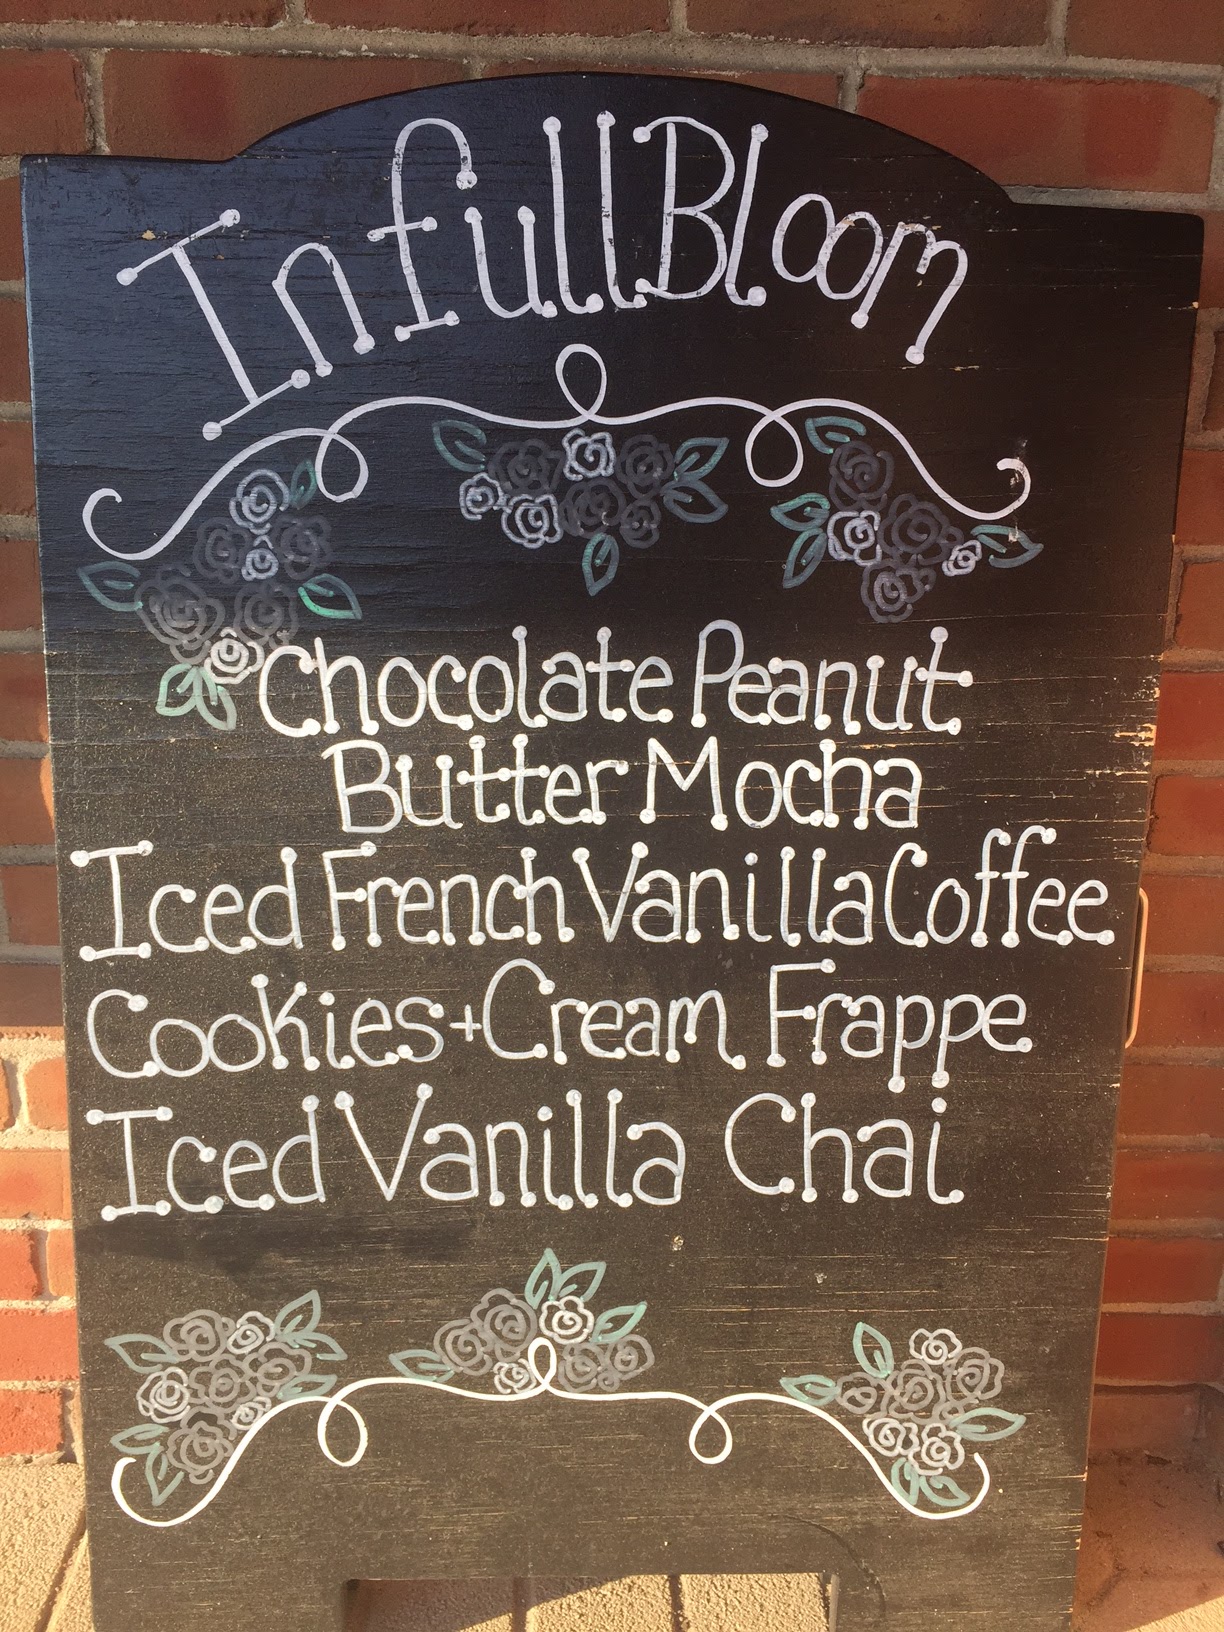 In full Bloom
Chocolate Peanut
Butter Mocha
Iced French Vanilla Coffee
Cookies + Cream Frappe
Iced Vanilla Chai